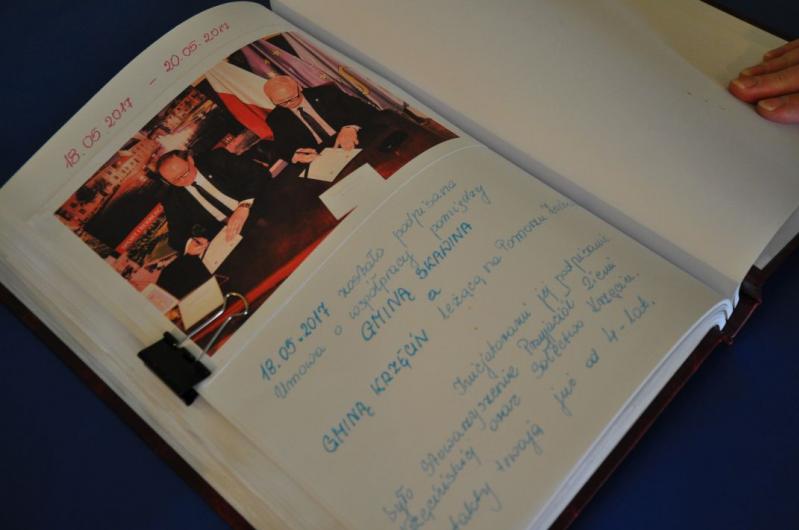 18.05.2017 - 20.05.2017
18.05.2017 została podpisana
Umowa o współpracy pomiędzy
GMINĄ SKAWINA
a
GMINĄ KRZĘCIN leżącą na Pomorzu
Inicjatorami jej podpisania
było Stowarzyszenie Przyjaciół Ziemi
Krzęcińskiej oraz Sołectwo Krzęcin.
trwają już od 4-lat.